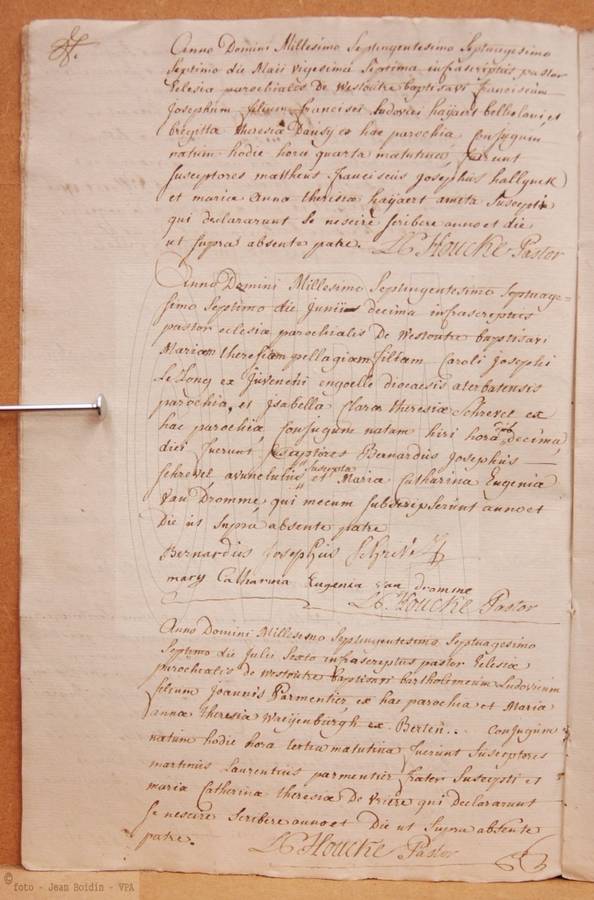 Anno Domini Millesimo Septingentesimo Septuagesimo
Septimo die Maii vigesima Septima infrascriptus pastor
Eclesiæ parochialis De Westoutre baptisavi franciscum
Josephum filium francisci Ludovici haÿaert belliolani, et
brigitta theresia Dausÿ ex hac parochia Conjugum
natum hodie hora quarta matutina, fuerunt
Susceptores mattheus franciscus Josephus hallÿnck
et maria anna theresia haÿaert amita Suscepti
qui declararunt Se nescire scribere anno et die
ut Supra absente patre. Houcke Pastor
Anno Domini Millesimo Septingentesimo Septuage=
simo Septimo die Junii decima infrascriptus
pastor eclesiæ parochialis De Westoutre baptisavi
Mariam theresiam pellagiam filiam Caroli Josephi
ex diocæsis
parochia, et Isabella Clara theresiæ Schrevel ex
hac parochia Conjugum natam hiri hora decima
diei fuerunt Susceptores Bernardus Josephus
Schrevel avunculus Susceptæ et Maria Catharina Eugenia
Van Dromme qui mecum Subscripserunt anno et
Die ut Supra absente patre
Bernardus Josephus Schrevel
marij Catharina Eugenia van dromme
Houcke Pastor
Anno Domini Millesimo Septingentesimo Septuagesimo
Septimo die Julii Sexto infrascriptus pastor Eclesiæ
parochialis de Westoutre Baptisavi bartholomeum Ludovicum
filium Joannis Parmentier ex hac parochia et Maria
annæ theresia Weÿenburgh ex Berten.. Conjugum
natum hodie hora tertia matutina fuerunt Susceptores
martinus Laurentius parmentier frater Suscepti et
maria Catherina theresia De Vriere qui declararunt
Se nescire Scribere anno et Die ut Supra absente
patre. Houcke Pastor
© foto - Jean Boidin - VPA